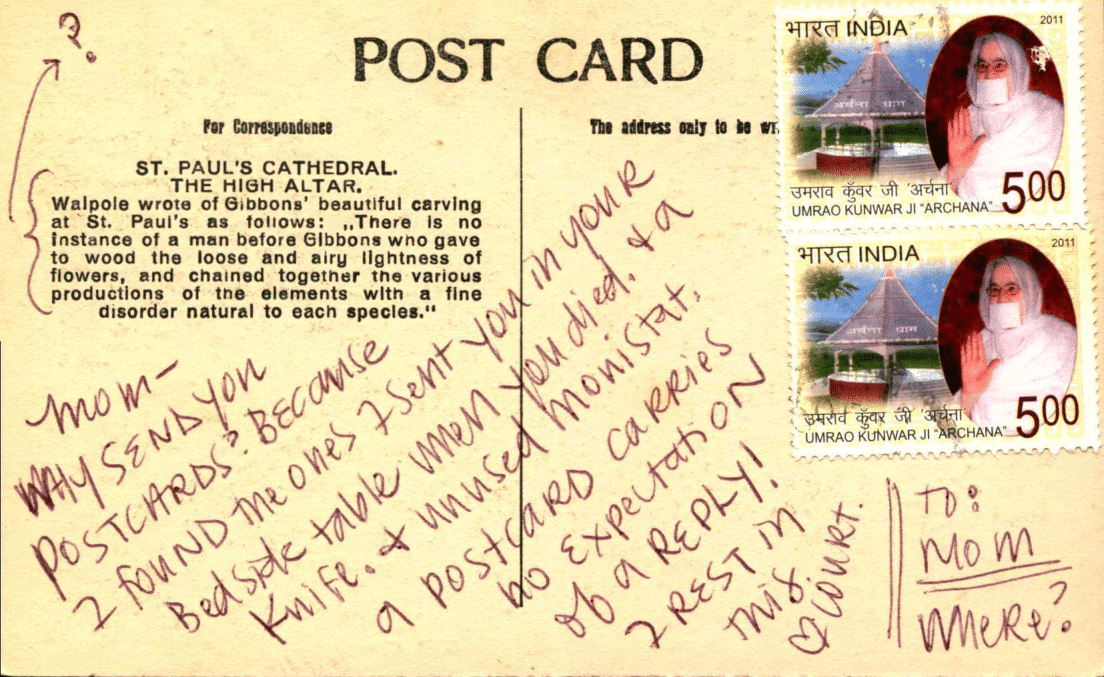 ?.
POST CARD
For Correspondence
The address only to be wr
ST. PAUL'S CATHEDRAL.
THE HIGH ALTAR.
Walpole wrote of Gibbons' beautiful carving
at St. Paul's as follows: „There is no
instance of a man before Gibbons who gave
to wood the loose and airy lightness of
flowers, and chained together the various
productions of the elements with a fine
disorder natural to each species."
Mom-
WHY SEND YOU
POSTCARDS? BECAUSE
I found the ones I sent you in your
Bedside table when you died. & a
Knife. & unused Monistat.
a postcard carries
no expectation
of a REPLY!
I REST IN
this.
♡ Court.
भारत INDIA 2011
अर्चना धाम
उमराव कुँवर जी 'अर्चना'
UMRAO KUNWAR JI "ARCHANA" 500
भारत INDIA 2011
अर्चना धाम
उमराव कुँवर जी 'अर्चना'
UMRAO KUNWAR JI "ARCHANA" 500
TO:
MOM
WHERE?